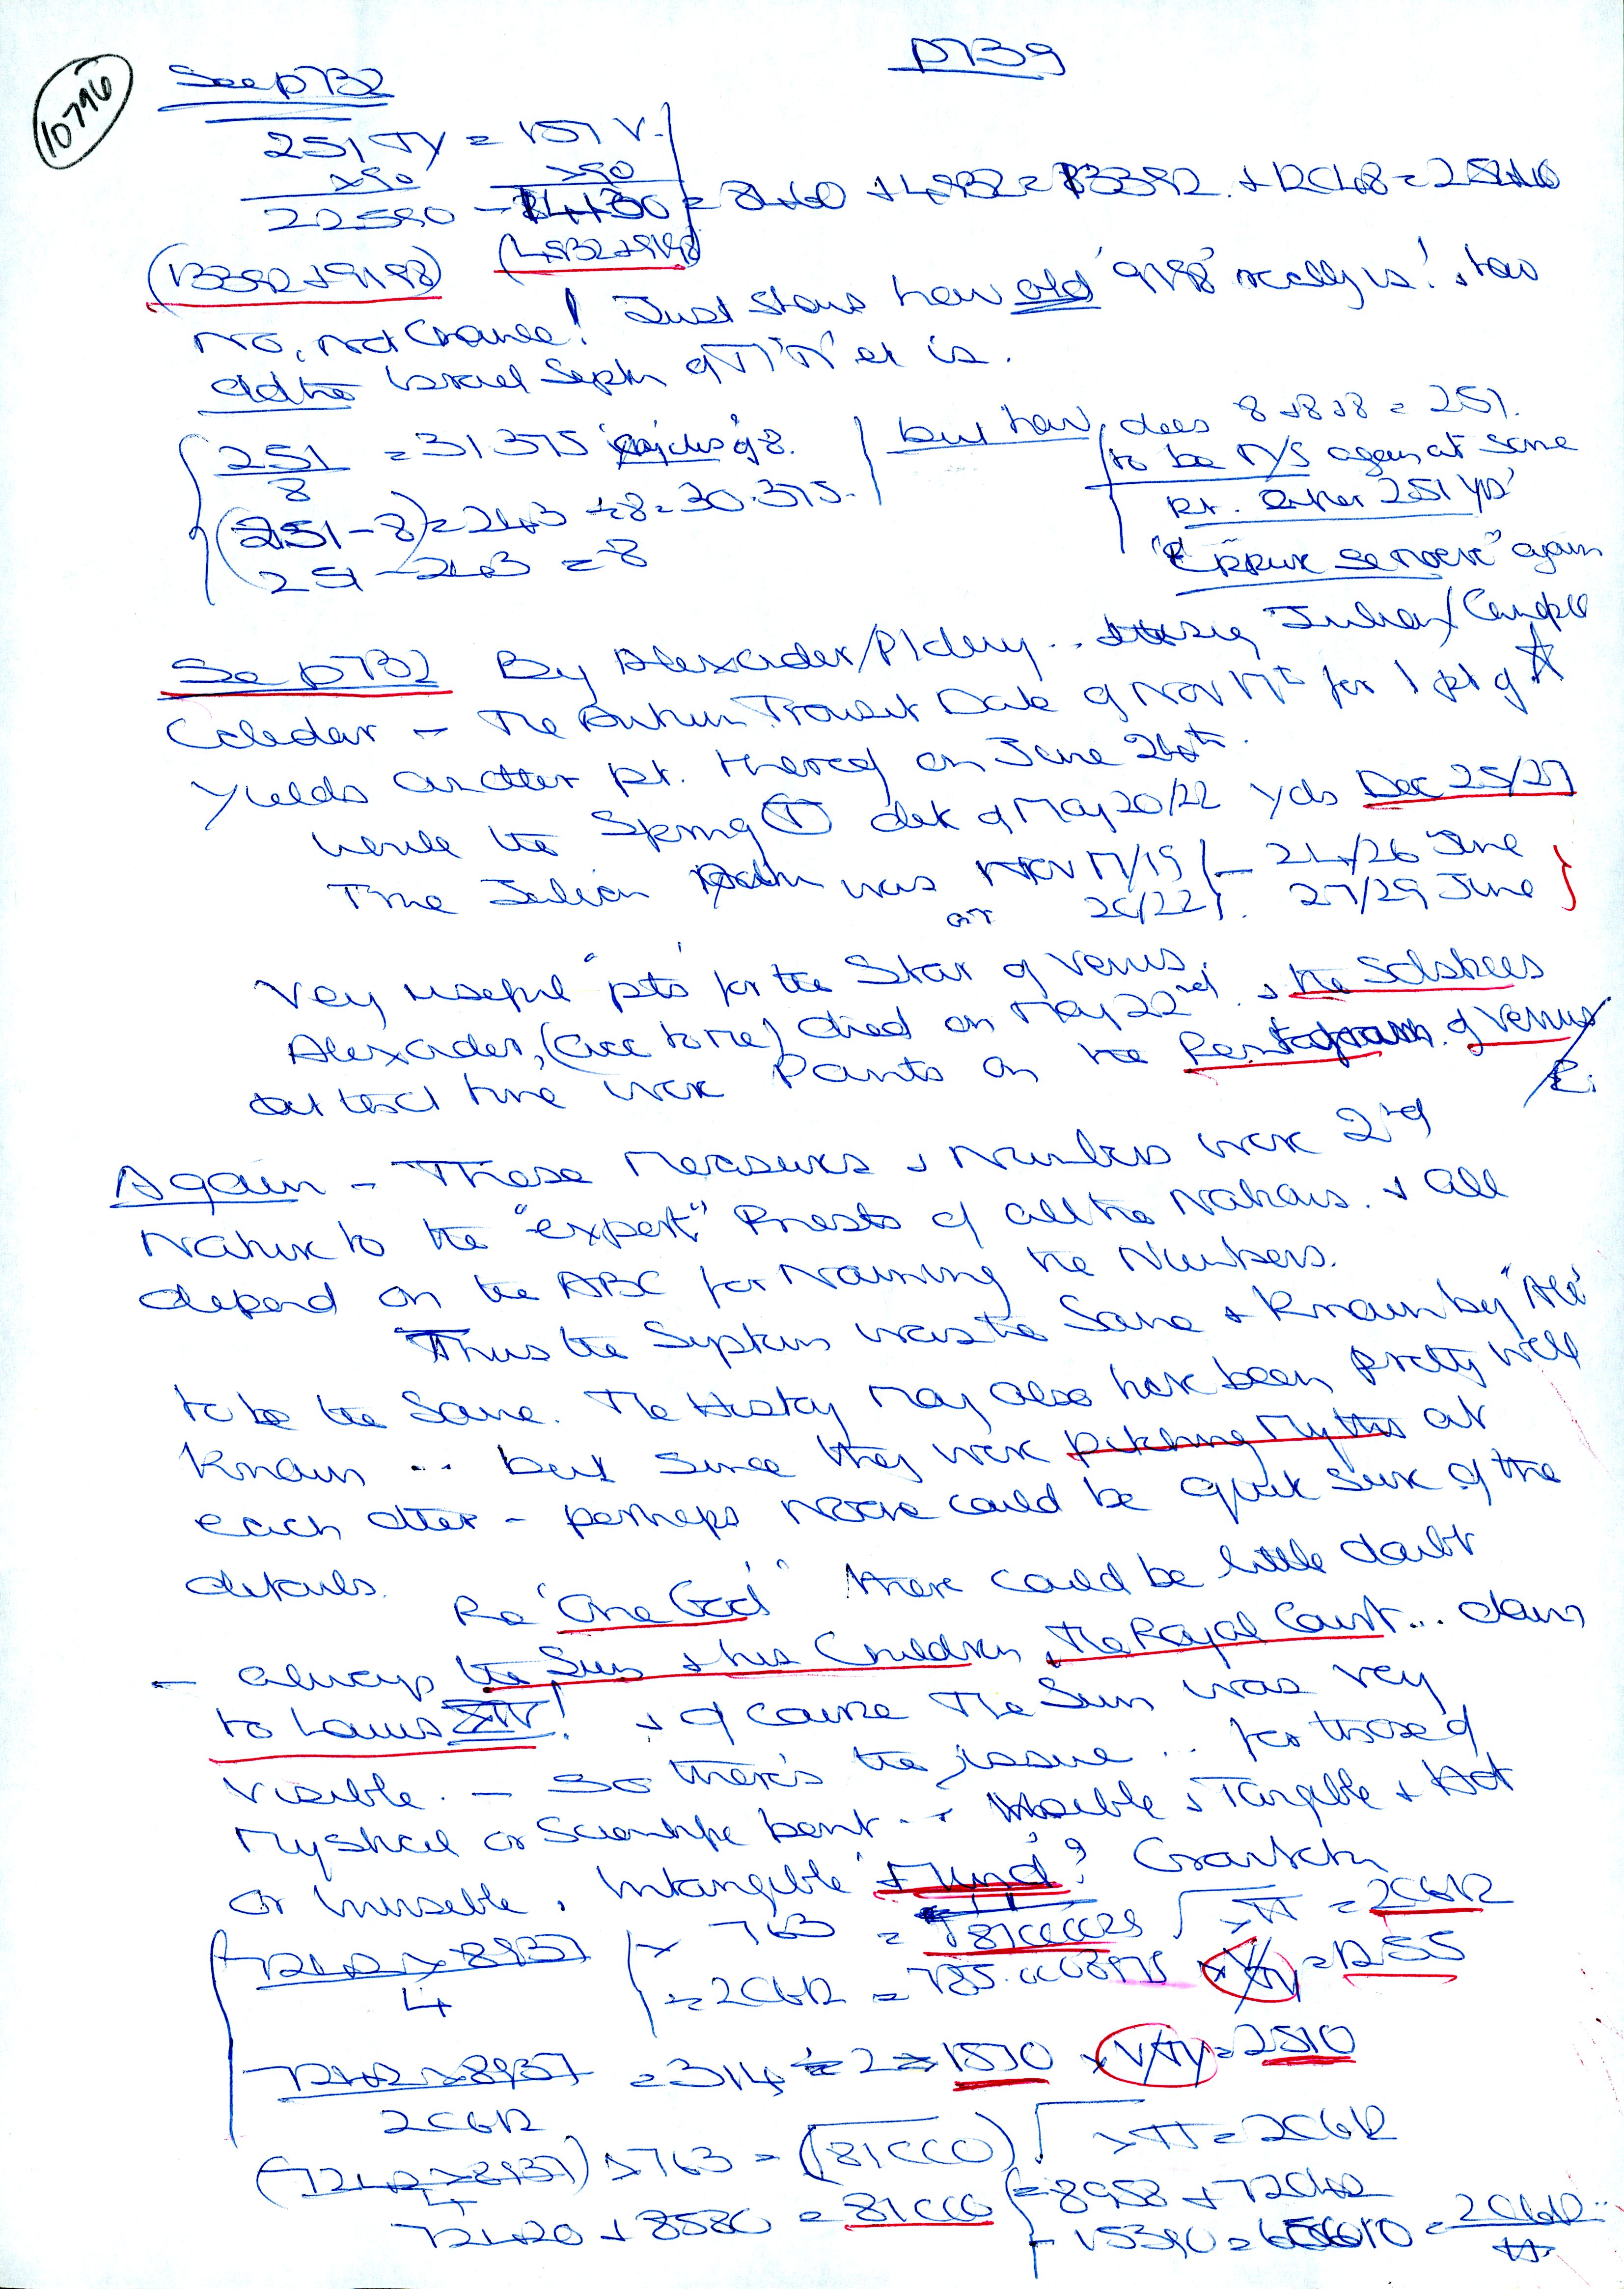 p7B9
10796
See p7B2
251 TY = 157 V.
x90 x90
22590 - 14130 = 8460 + 4932 = 13392. + 12048 = 25440
(13392+9198) (4932+9198)
No, not Chance! Just shows how old '9198' really is! & how
old the Israel Septn of it is.
251 = 31.375 cycles of 8. but how does 8+8+8 = 251.
8 to be M/S again at same
(251-8) = 243 ÷ 8 = 30.375. pt. after 251 yrs'
251 - 243 = 8
again
See p7B2 By Alexander/Ptolemy .. Julian/
Calendar - The Autumn Transit Date of Nov 17th for 1 pt of ☆
yields another pt. thereof on June 24th.
while the Spring T date of May 20/22 yds Dec 25/27
True Julian was Nov 17/19 - 24/26 June
or 20/22 . 27/29 June
Very useful "pts" for the Star of Venus, & the Solstices
Alexander, (acc to me) died on May 22nd.
at that time were Points on the Pentagram of Venus
Again - These Measures & Numbers were 2nd
Nature to the "expert" Priests of all the Nations. & all
depend on the ABC for Naming the Numbers.
Thus the System was the Same & Known by "All"
to be the Same. The History may also have been pretty well
Known ... but since they were pitching Myths at
each other - perhaps None could be quite sure of the
details.
Re 'One God' there could be little doubt
- always the Sun & his Children, the Royal Court... down
to Louis XIV! & of course The Sun was very
Visible. - So there's the issue ... for those of
Mystical or Scientific bent .. Visible & Tangible & Hot
or Invisible, Intangible & Mind? Gravitation
7242 x 8937 x 763 = 81000029 √ x π = 20612
4 ÷ 20612 = 785.0003975 x V/TY = 1255
7242 x 8937 = 314 ÷ 2 = 1570 x V/TY = 2510
20612
(7242 x 8937) x 763 = (81000) √ x π = 20612
4
72420 + 8580 = 81000 = 8958 + 72042
- 15390 = 65610 = 20612
π